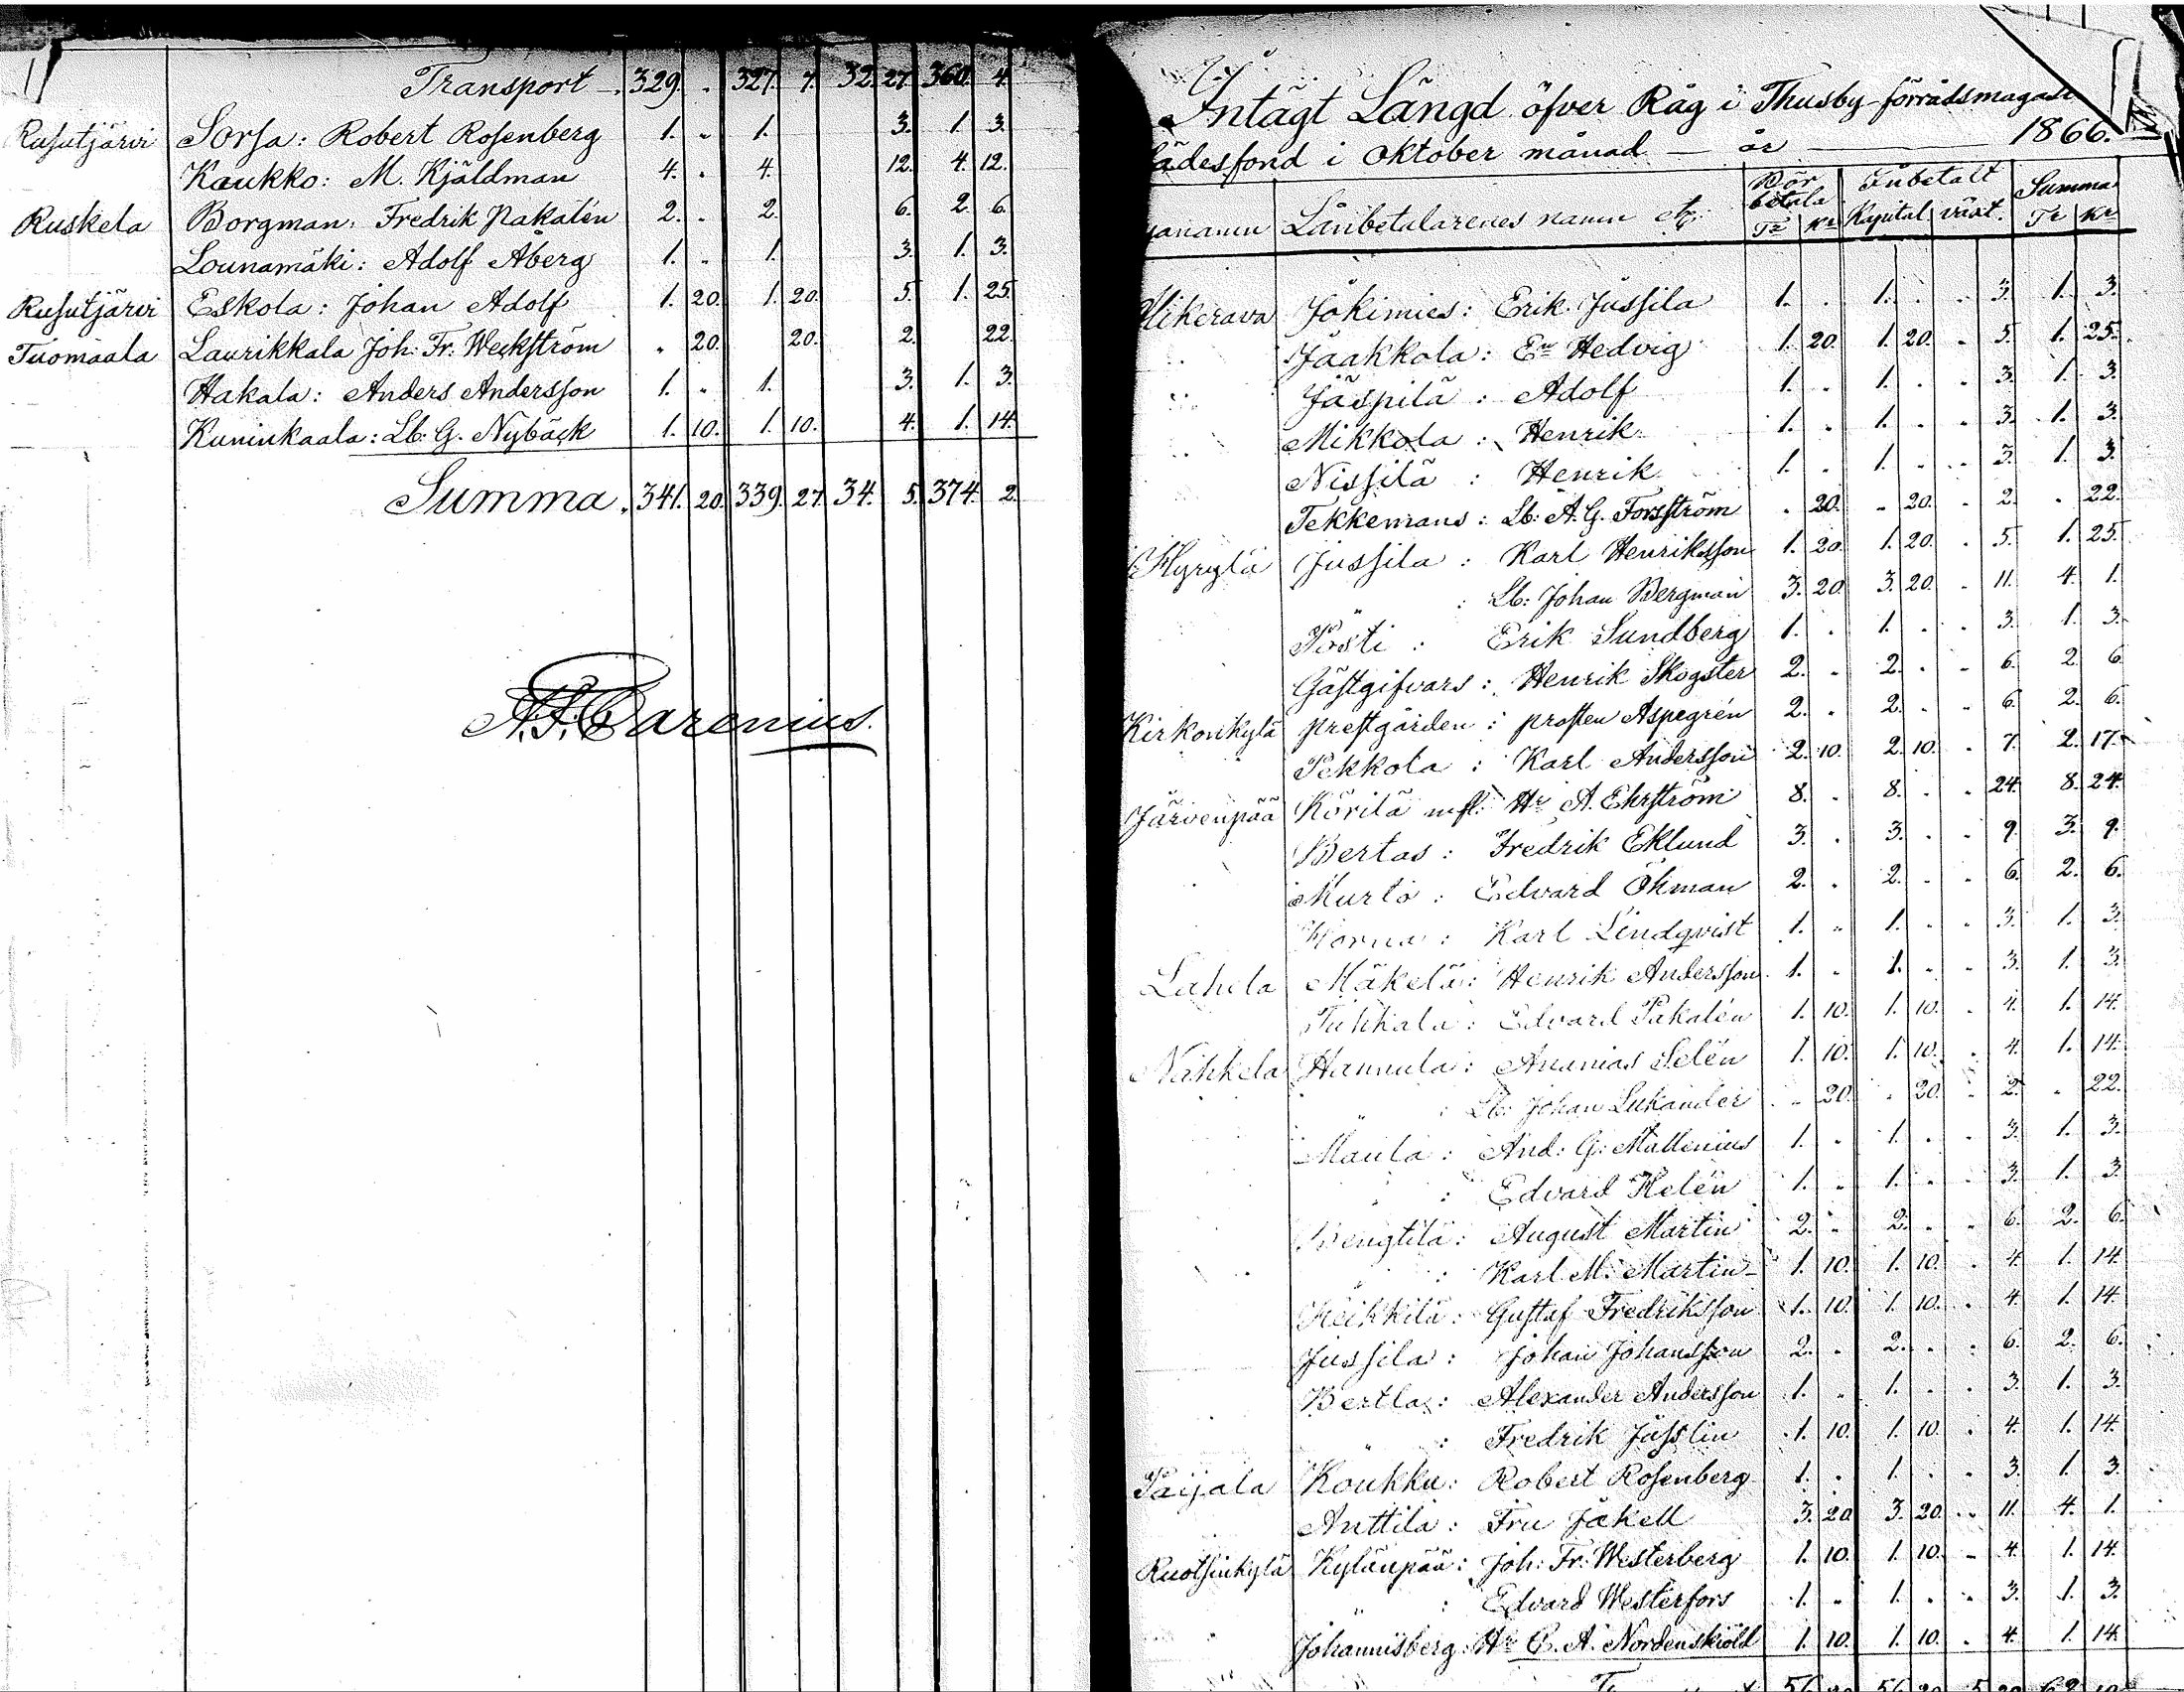 Transport 329. " 327. 7. 32. 27. 360. 4.
Rusutjärvi Sorsa: Robert Rosenberg 1. " 1. 3. 1. 3.
Kaukko: M. Kjäldman 4. " 4. 12. 4. 12.
Ruskela Borgman: Fredrik Pakalén 2. " 2. 6. 2. 6.
Lounamäki: Adolf Åberg 1. " 1. 3. 1. 3.
Rusutjärvi Eskola: Johan Adolf 1. 20. 1. 20. 5. 1. 25.
Tuomaala Laurikkala Joh: Fr: Weckström " 20. 20. 2. 22.
Hakala: Anders Andersson 1. " 1. 3. 1. 3.
Kuninkaala: Lb: G. Nybäck 1. 10. 1. 10. 4. 1. 14.
Summa. 341. 20. 339. 27. 34. 5. 374. 2.
Carenius.
Intägt Längd öfver Råg i Thusby förrådsmagasi
lädesfond i Oktober månad — år — 1866.
Bör betala Inbetalt Summa
Lånbetalarenes namn etc: Tr Kr Kapital växt. Tr Kr
Alikerava Jokimies: Erik Jussila 1. " 1. " " 3. 1. 3.
" Jaakkola: En Hedvig 1. 20. 1. 20. " 5. 1. 25.
" Jäspilä: Adolf 1. " 1. " " 3. 1. 3.
" Mikkola: Henrik 1. " 1. " " 3. 1. 3.
Nissilä: Henrik 1. " 1. " " 3. 1. 3.
Tekkemans: Lb: A. G. Forsström " 20. " 20. " 2. " 22.
Hyrylä Jussila: Karl Henriksson 1. 20. 1. 20. " 5. 1. 25.
" : Lb: Johan Bergman 3. 20. 3. 20. " 11. 4. 1.
Posti: Erik Sundberg 1. " 1. " " 3. 1. 3.
Gästgifvars: Henrik Skogster 2. " 2. " " 6. 2. 6.
Kirkonkylä prestgården: prosten Aspegrén 2. " 2. " " 6. 2. 6.
Pekkola: Karl Andersson 2. 10. 2. 10. " 7. 2. 17.
Järvenpää Körilä mfl: Hr A. Ehrström 8. " 8. " " 24. 8. 24.
Bertas: Fredrik Eklund 3. " 3. " " 9. 3. 9.
Murto: Edvard Öhman 2. " 2. " " 6. 2. 6.
Horna: Karl Lindqvist 1. " 1. " " 3. 1. 3.
Lahela Mäkelä: Henrik Andersson 1. " 1. " " 3. 1. 3.
Tuhkala: Edvard Pakalén 1. 10. 1. 10. " 4. 1. 14.
Nahkela Hannula: Ananias Selén 1. 10. 1. 10. " 4. 1. 14.
" : Lb: Johan Lukander " 20. " 20. " 2. " 22.
Maula: And: G: Mallenius 1. " 1. " " 3. 1. 3.
" : Edvard Helén 1. " 1. " " 3. 1. 3.
Bengtilä: August Martin 2. " 2. " " 6. 2. 6.
" : Karl M. Martin 1. 10. 1. 10. " 4. 1. 14.
Heikkilä: Gustaf Fredriksson 1. 10. 1. 10. " 4. 1. 14.
Jussila: Johan Johansson 2. " 2. " " 6. 2. 6.
Bertla: Alexander Andersson 1. " 1. " " 3. 1. 3.
" : Fredrik Jusslin 1. 10. 1. 10. " 4. 1. 14.
Paijala Koukku: Robert Rosenberg 1. " 1. " " 3. 1. 3.
Anttila: Fru Jakell 3. 20. 3. 20. " 11. 4. 1.
Ruotsinkylä Kylänpää: Joh: Fr: Westerberg 1. 10. 1. 10. " 4. 1. 14.
" : Edvard Westerfors 1. " 1. " " 3. 1. 3.
Johannisberg: Hr C. A. Nordenskiöld 1. 10. 1. 10. " 4. 1. 14.